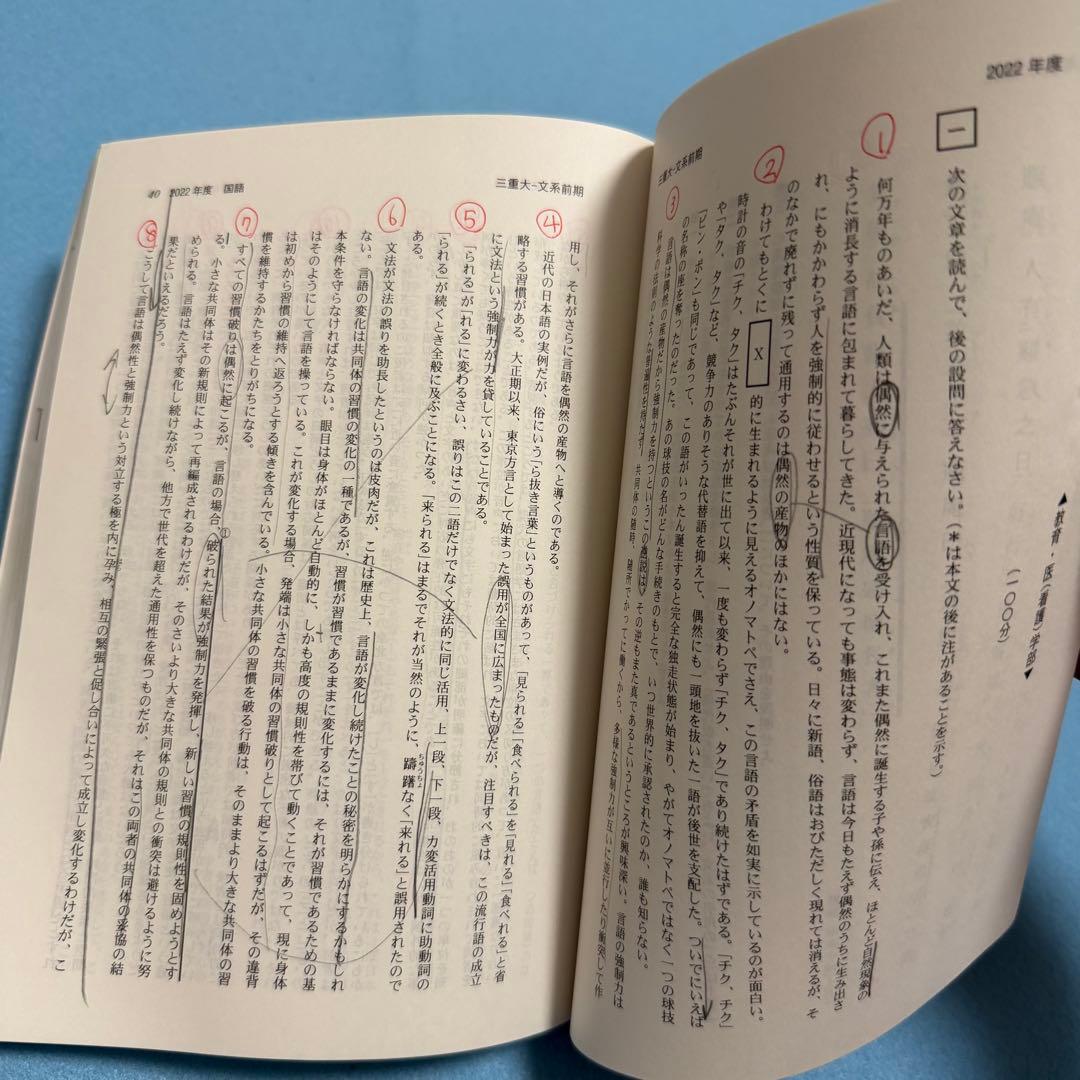 2022年度
三重大-文系前期
▲教育・医(看護)学部▼
(一〇〇分)
一 次の文章を読んで、後の設問に答えなさい。(*は本文の後に注があることを示す。)
①
何万年ものあいだ、人類は偶然に与えられた言語を受け入れ、これまた偶然に誕生する子や孫に伝え、ほとんど自然現象の
ように消長する言語に包まれて暮らしてきた。近現代になっても事態は変わらず、言語は今日もたえず偶然のうちに生み出さ
れ、にもかかわらず人を強制的に従わせるという性質を保っている。日々に新語、俗語はおびただしく現れては消えるが、そ
のなかで廃れずに残って通用するのは偶然の産物のほかにはない。
②
わけてもとくに X 的に生まれるように見えるオノマトペでさえ、この言語の矛盾を如実に示しているのが面白い。
時計の音の「チク、タク」はたぶんそれが世に出て以来、一度も変わらず「チク、タク」であり続けたはずである。「チク、チク」
や「タク、タク」など、競争力のありそうな代替語を抑えて、偶然にも一頭地を抜いた一語が後世を支配した。ついでにいえば
「ピン・ポン」も同じであって、この語がいったん誕生すると完全な独走状態が始まり、やがてオノマトペではなく一つの球技
の名称の座を奪ったのだった。あの球技の名がどんな手続きのもとで、いつ世界的に承認されたのか、誰も知らない。
③
言語は偶然の産物だから強制力を持つというこの逆説は、その逆もまた真であるというところが興味深い。言語の強制力は
科学の法則のような普遍性を持たず、共同体の随時、随所でかってに働くから、多様な強制力が互いに並行したり衝突して作
40 2022年度 国語
三重大-文系前期
用し、それがさらに言語を偶然の産物へと導くのである。
④
近代の日本語の実例だが、俗にいう「ら抜き言葉」というものがあって、「見られる」「食べられる」を「見れる」「食べれる」と省
略する習慣がある。大正期以来、東京方言として始まった誤用が全国に広まったものだが、注目すべきは、この流行語の成立
に文法という強制力が力を貸していることである。
⑤
「られる」が「れる」に変わるさい、誤りはこの二語だけでなく文法的に同じ活用、上一段、下一段、カ変活用動詞に助動詞の
「られる」が続くとき全般に及ぶことになる。「来られる」はまるでそれが当然のように、躊躇なく「来れる」と誤用されたので
ちゅうちょ
ある。
⑥
文法が文法の誤りを助長したというのは皮肉だが、これは歴史上、言語が変化し続けたことの秘密を明らかにするかもしれ
ない。言語の変化は共同体の習慣の変化の一種であるが、習慣が習慣であるままに変化するには、それが習慣であるための基
本条件を守らなければならない。眼目は身体がほとんど自動的に、しかも高度の規則性を帯びて動くことであって、現に身体
はそのようにして言語を操っている。これが変化する場合、発端は小さな共同体の習慣破りとして起こるはずだが、その違背
は初めから習慣の維持へ返ろうとする傾きを含んでいる。小さな共同体の習慣を破る行動は、そのままより大きな共同体の習
慣を維持するかたちをとりがちになる。
⑦
すべての習慣破りは偶然に起こるが、言語の場合、破られた結果が強制力を発揮し、新しい習慣の規則性を固めようとす
る。小さな共同体はその新規則によって再編成されるわけだが、そのさいより大きな共同体の規則との衝突は避けるように努
められる。言語はたえず変化し続けながら、他方で世代を超えた通用性を保つものだが、それはこの両者の共同体の妥協の結
果だといえるだろう。
⑧
こうして言語は偶然性と強制力という対立する極を内に孕み、相互の緊張と促し合いによって成立し変化するわけだが、こ